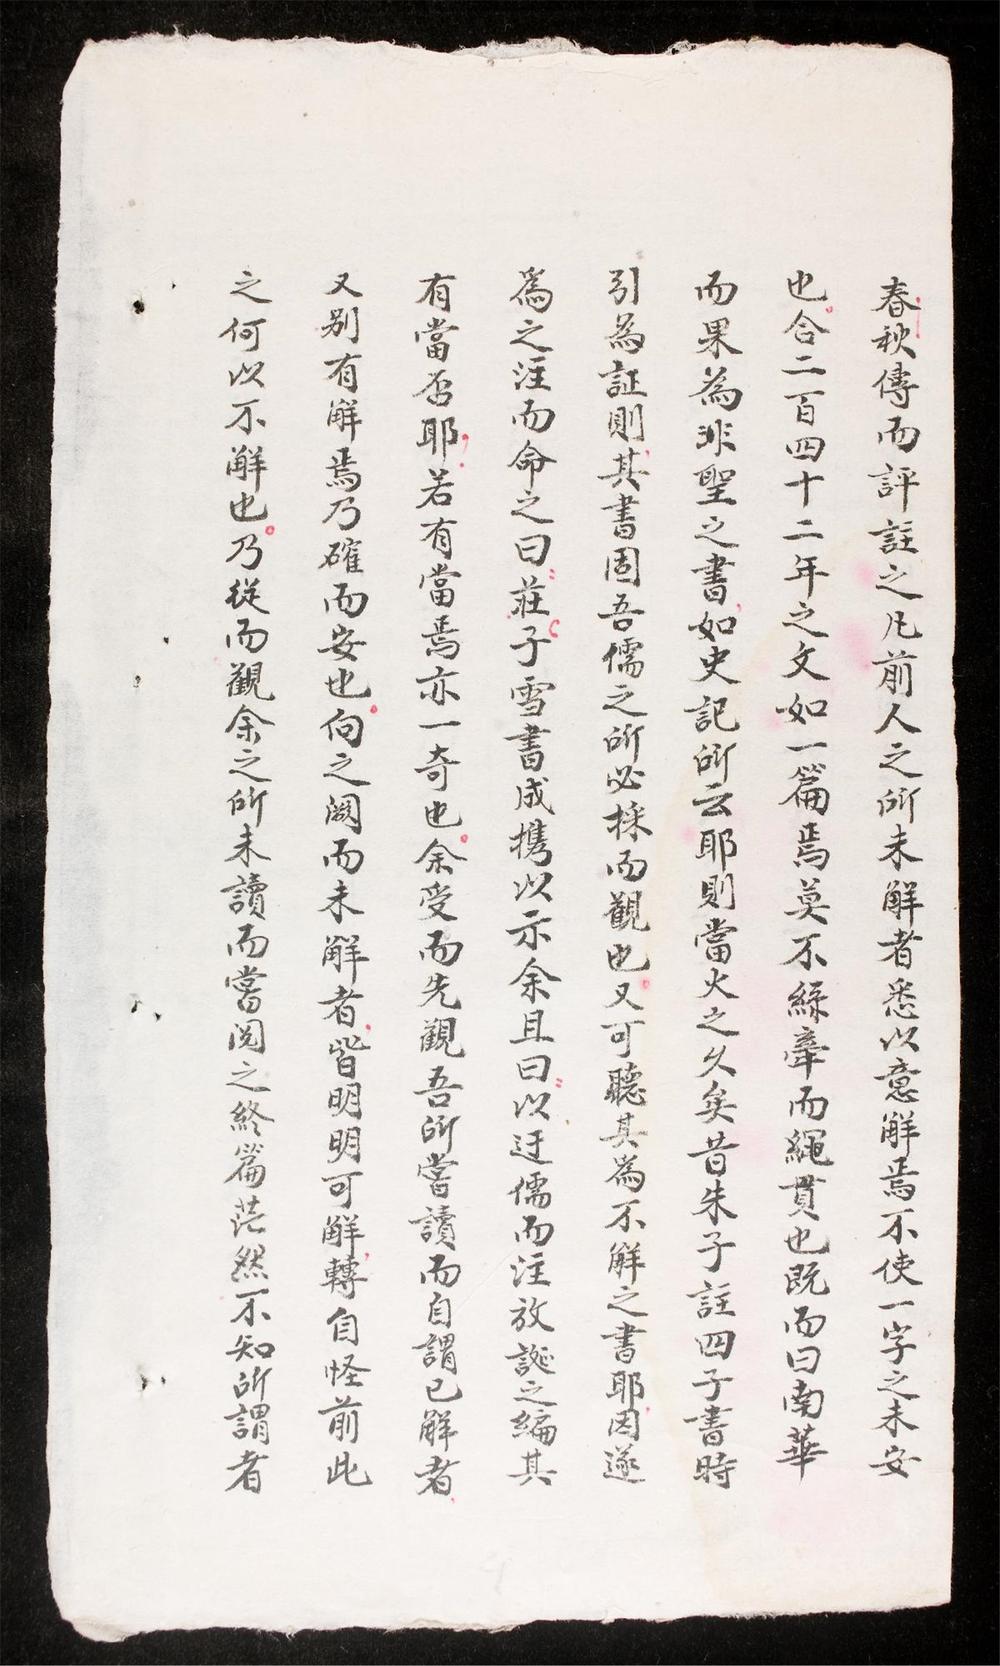 春秋傳而評註之凡前人之所未解者悉以意解焉不使一字之未安
也合二百四十二年之文如一篇焉莫不綠牽而繩貫也既而曰南華
而果為非聖之書如史記所云耶則當火之久矣昔朱子註四子書時
引為証則其書固吾儒之所必採而觀也又可聽其為不解之書耶因遂
為之注而命之曰莊子雪書成携以示余且曰以迂儒而注放誕之編其
有當否耶若有當焉亦一奇也余受而先觀吾所嘗讀而自謂已解者
又别有解焉乃確而安也向之闕而未解者皆明明可解轉自怪前此
之何以不解也乃從而觀余之所未讀而嘗閱之終篇茫然不知所謂者